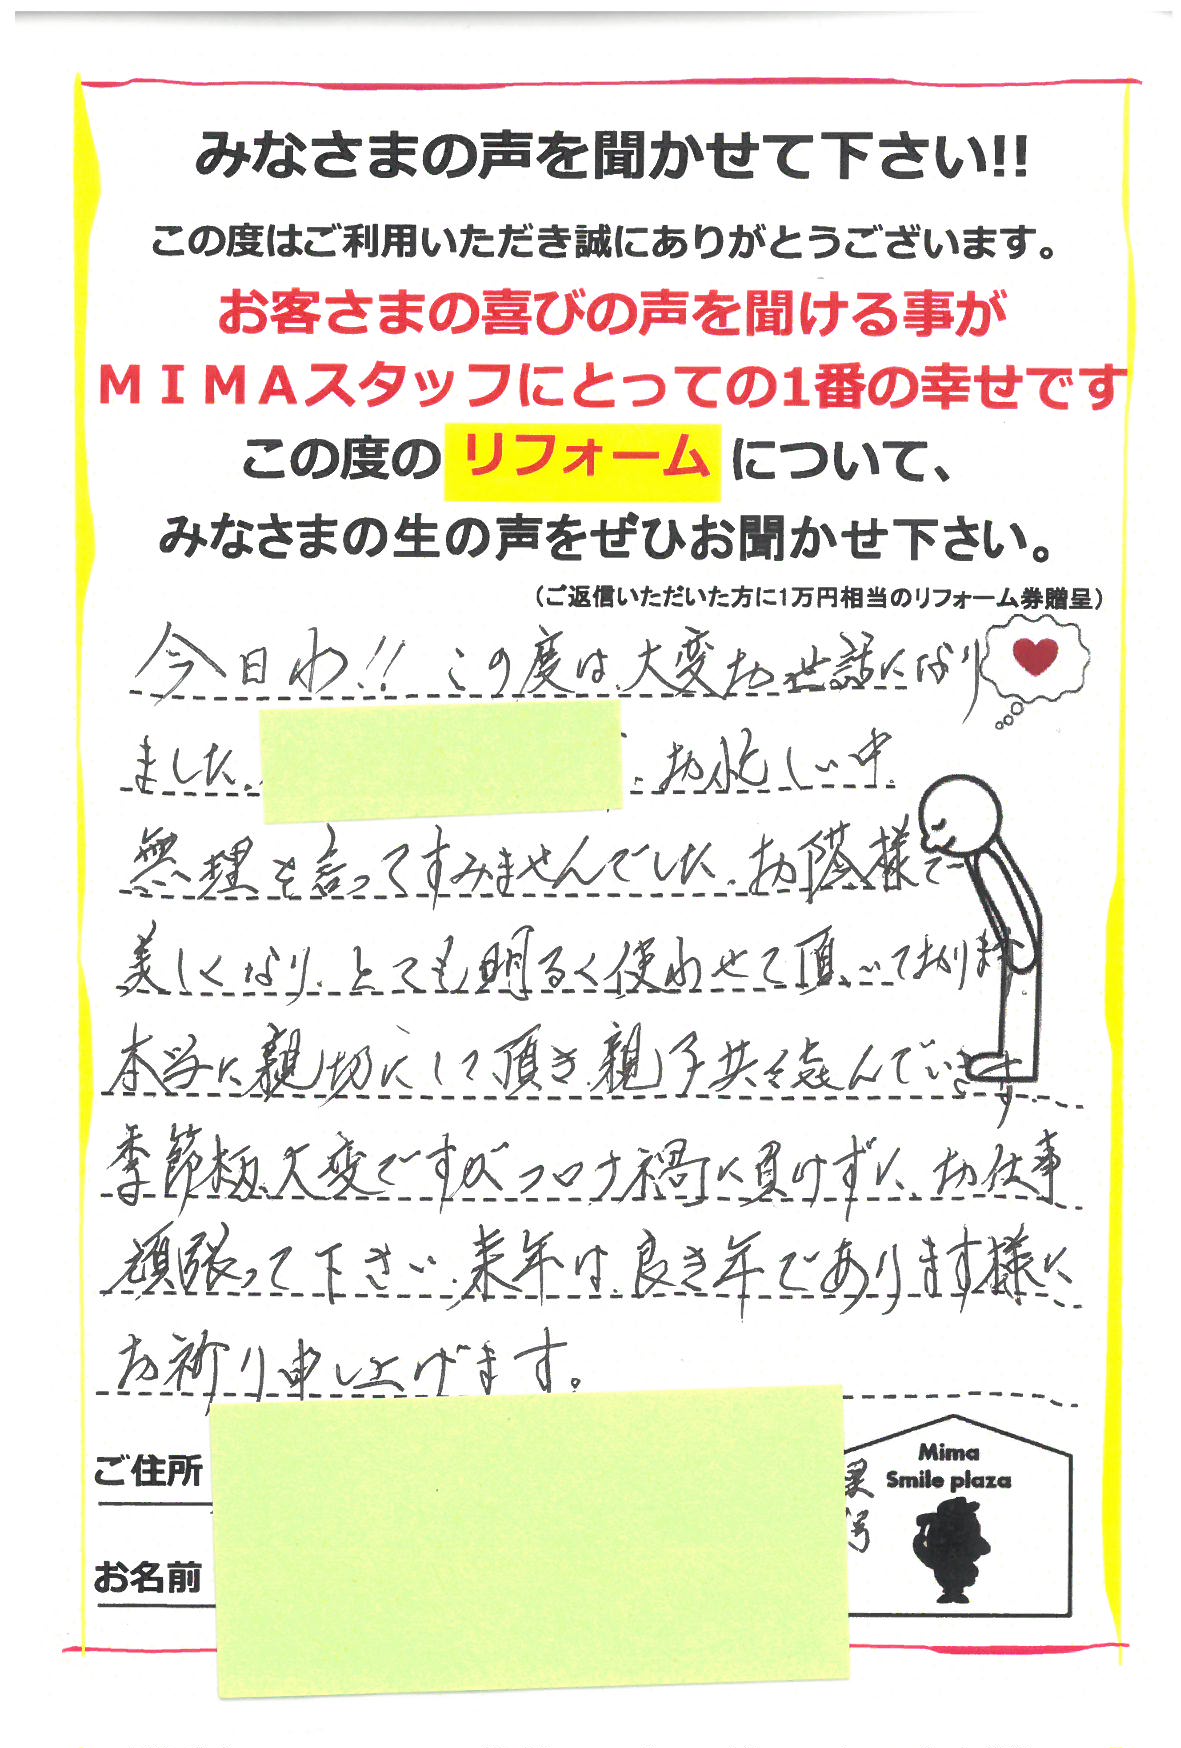 みなさまの声を聞かせて下さい!!
この度はご利用いただき誠にありがとうございます。
お客さまの喜びの声を聞ける事が
ＭＩＭＡスタッフにとっての1番の幸せです
この度の リフォーム について、
みなさまの生の声をぜひお聞かせ下さい。
（ご返信いただいた方に1万円相当のリフォーム券贈呈）
今日わ!! この度は、大変お世話になり
ました。 お忙しい中、
無理を言ってすみませんでした。お蔭様で
美しくなり、とても明るく使わせて頂いております
本当に親切にして頂き、親子共々喜んでいます。
季節柄、大変ですがコロナ禍に負けずに、お仕事
頑張って下さい。来年は、良き年であります様に
お祈り申し上げます。
ご住所
お名前
Mima
Smile plaza